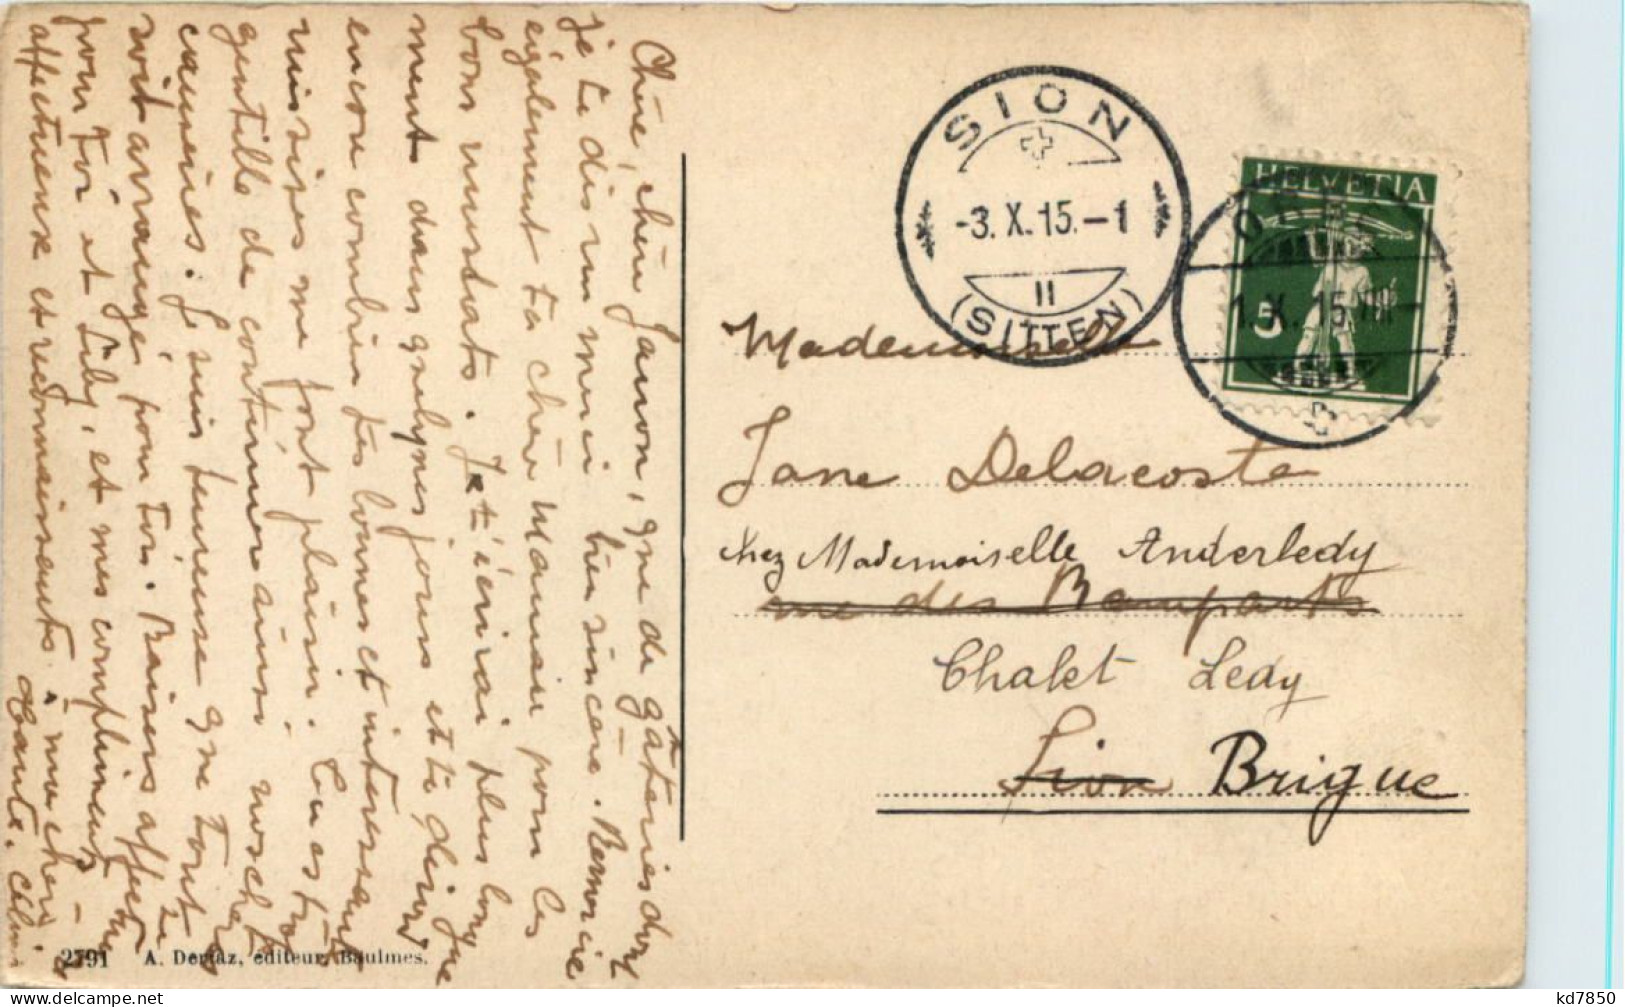 Chère, chère Janon, que de gâteries dont
je te dis un merci bien sincère. Remercie
également ta chère Maman pour les
bons nussats. Je t'écrirai plus longue
ment dans quelques jours et te dirai
encore combien tes bonnes et intéressantes
missives me font plaisir. Tu es très
gentille de continuer ainsi nos chères
causeries. Je suis heureuse que tout se
soit arrangé pour toi. Baisers affectueux
pour toi et Liby, et mes compliments
affectueux et reconnaissants à ma chère
Tante.
SION
-3.X.15.-1
II
(SITTEN)
HELVETIA
5
1.X.15
Mademoiselle
Jane Delacoste
chez Mademoiselle Anderledy
rue des Remparts
Chalet Ledy
Sion Brigue
2791 A. Deriaz, éditeur, Baulmes.
kd7850